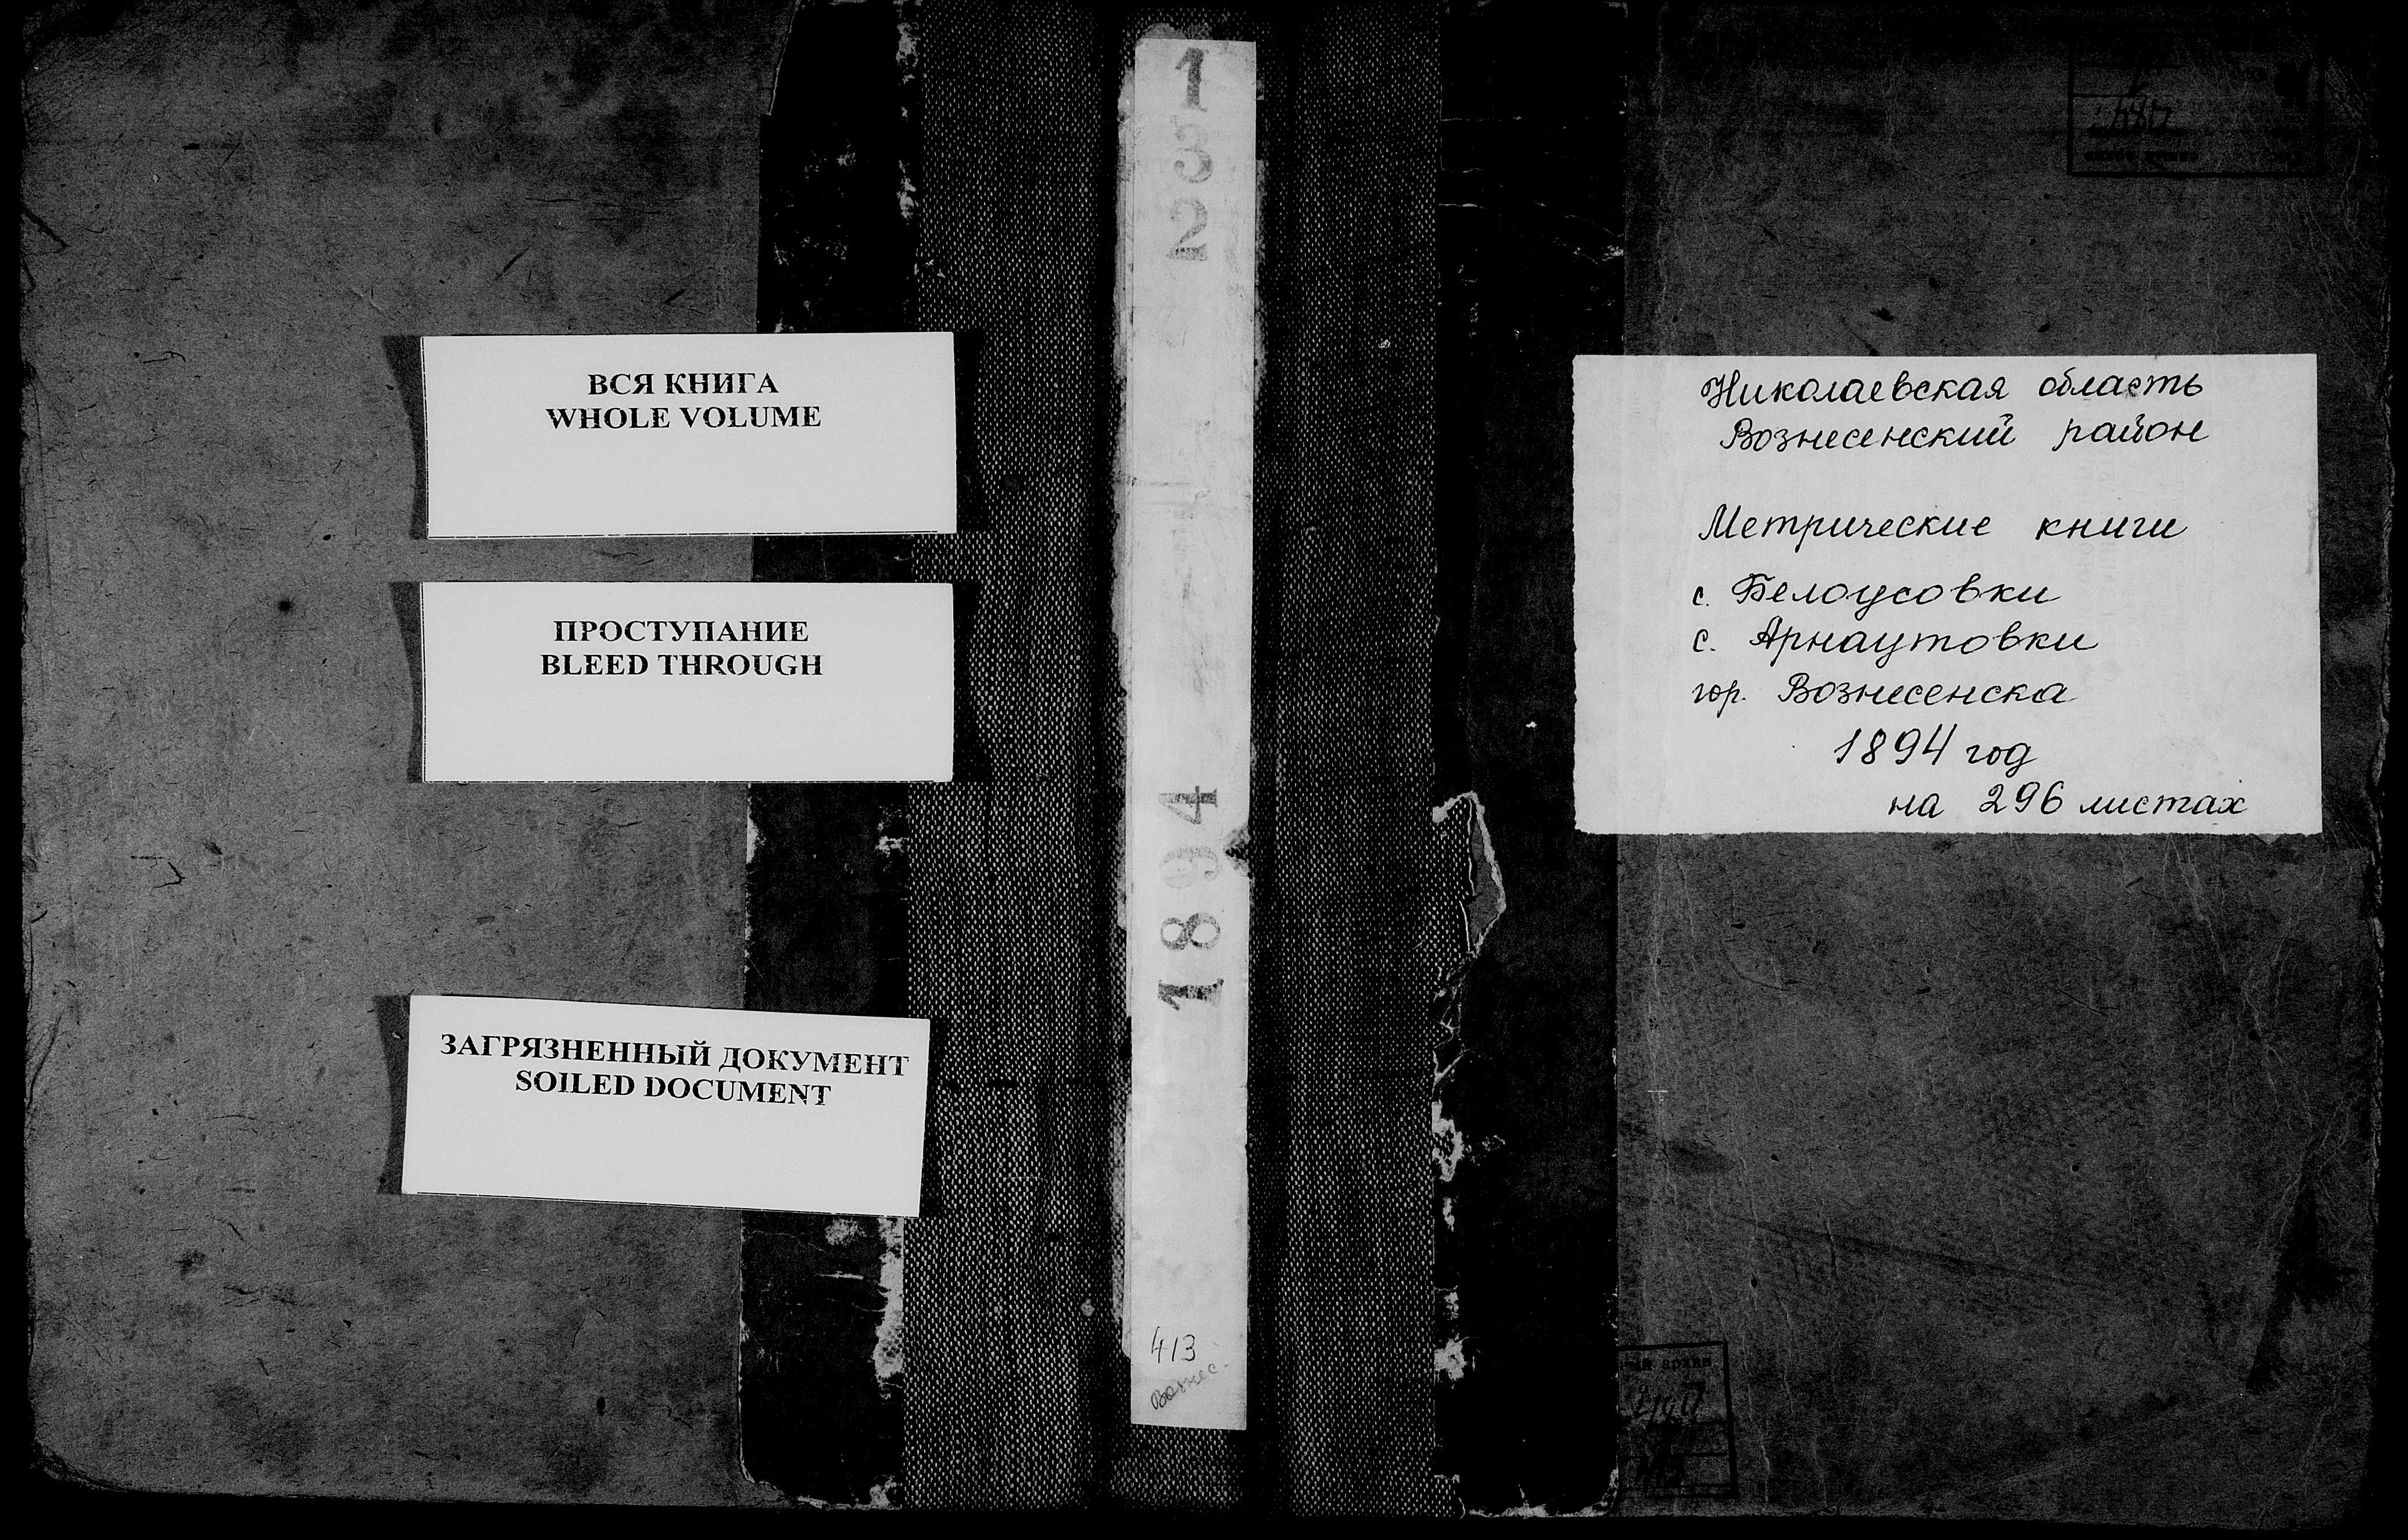 ВСЯ КНИГА
WHOLE VOLUME
ПРОСТУПАНИЕ
BLEED THROUGH
ЗАГРЯЗНЕННЫЙ ДОКУМЕНТ
SOILED DOCUMENT
132
1894
413
Вознес-
Николаевская область
Вознесенский район
Метрические книги
с. Белоусовки
с. Арнаутовки
гор. Вознесенска
1894 год
на 296 листах
архив